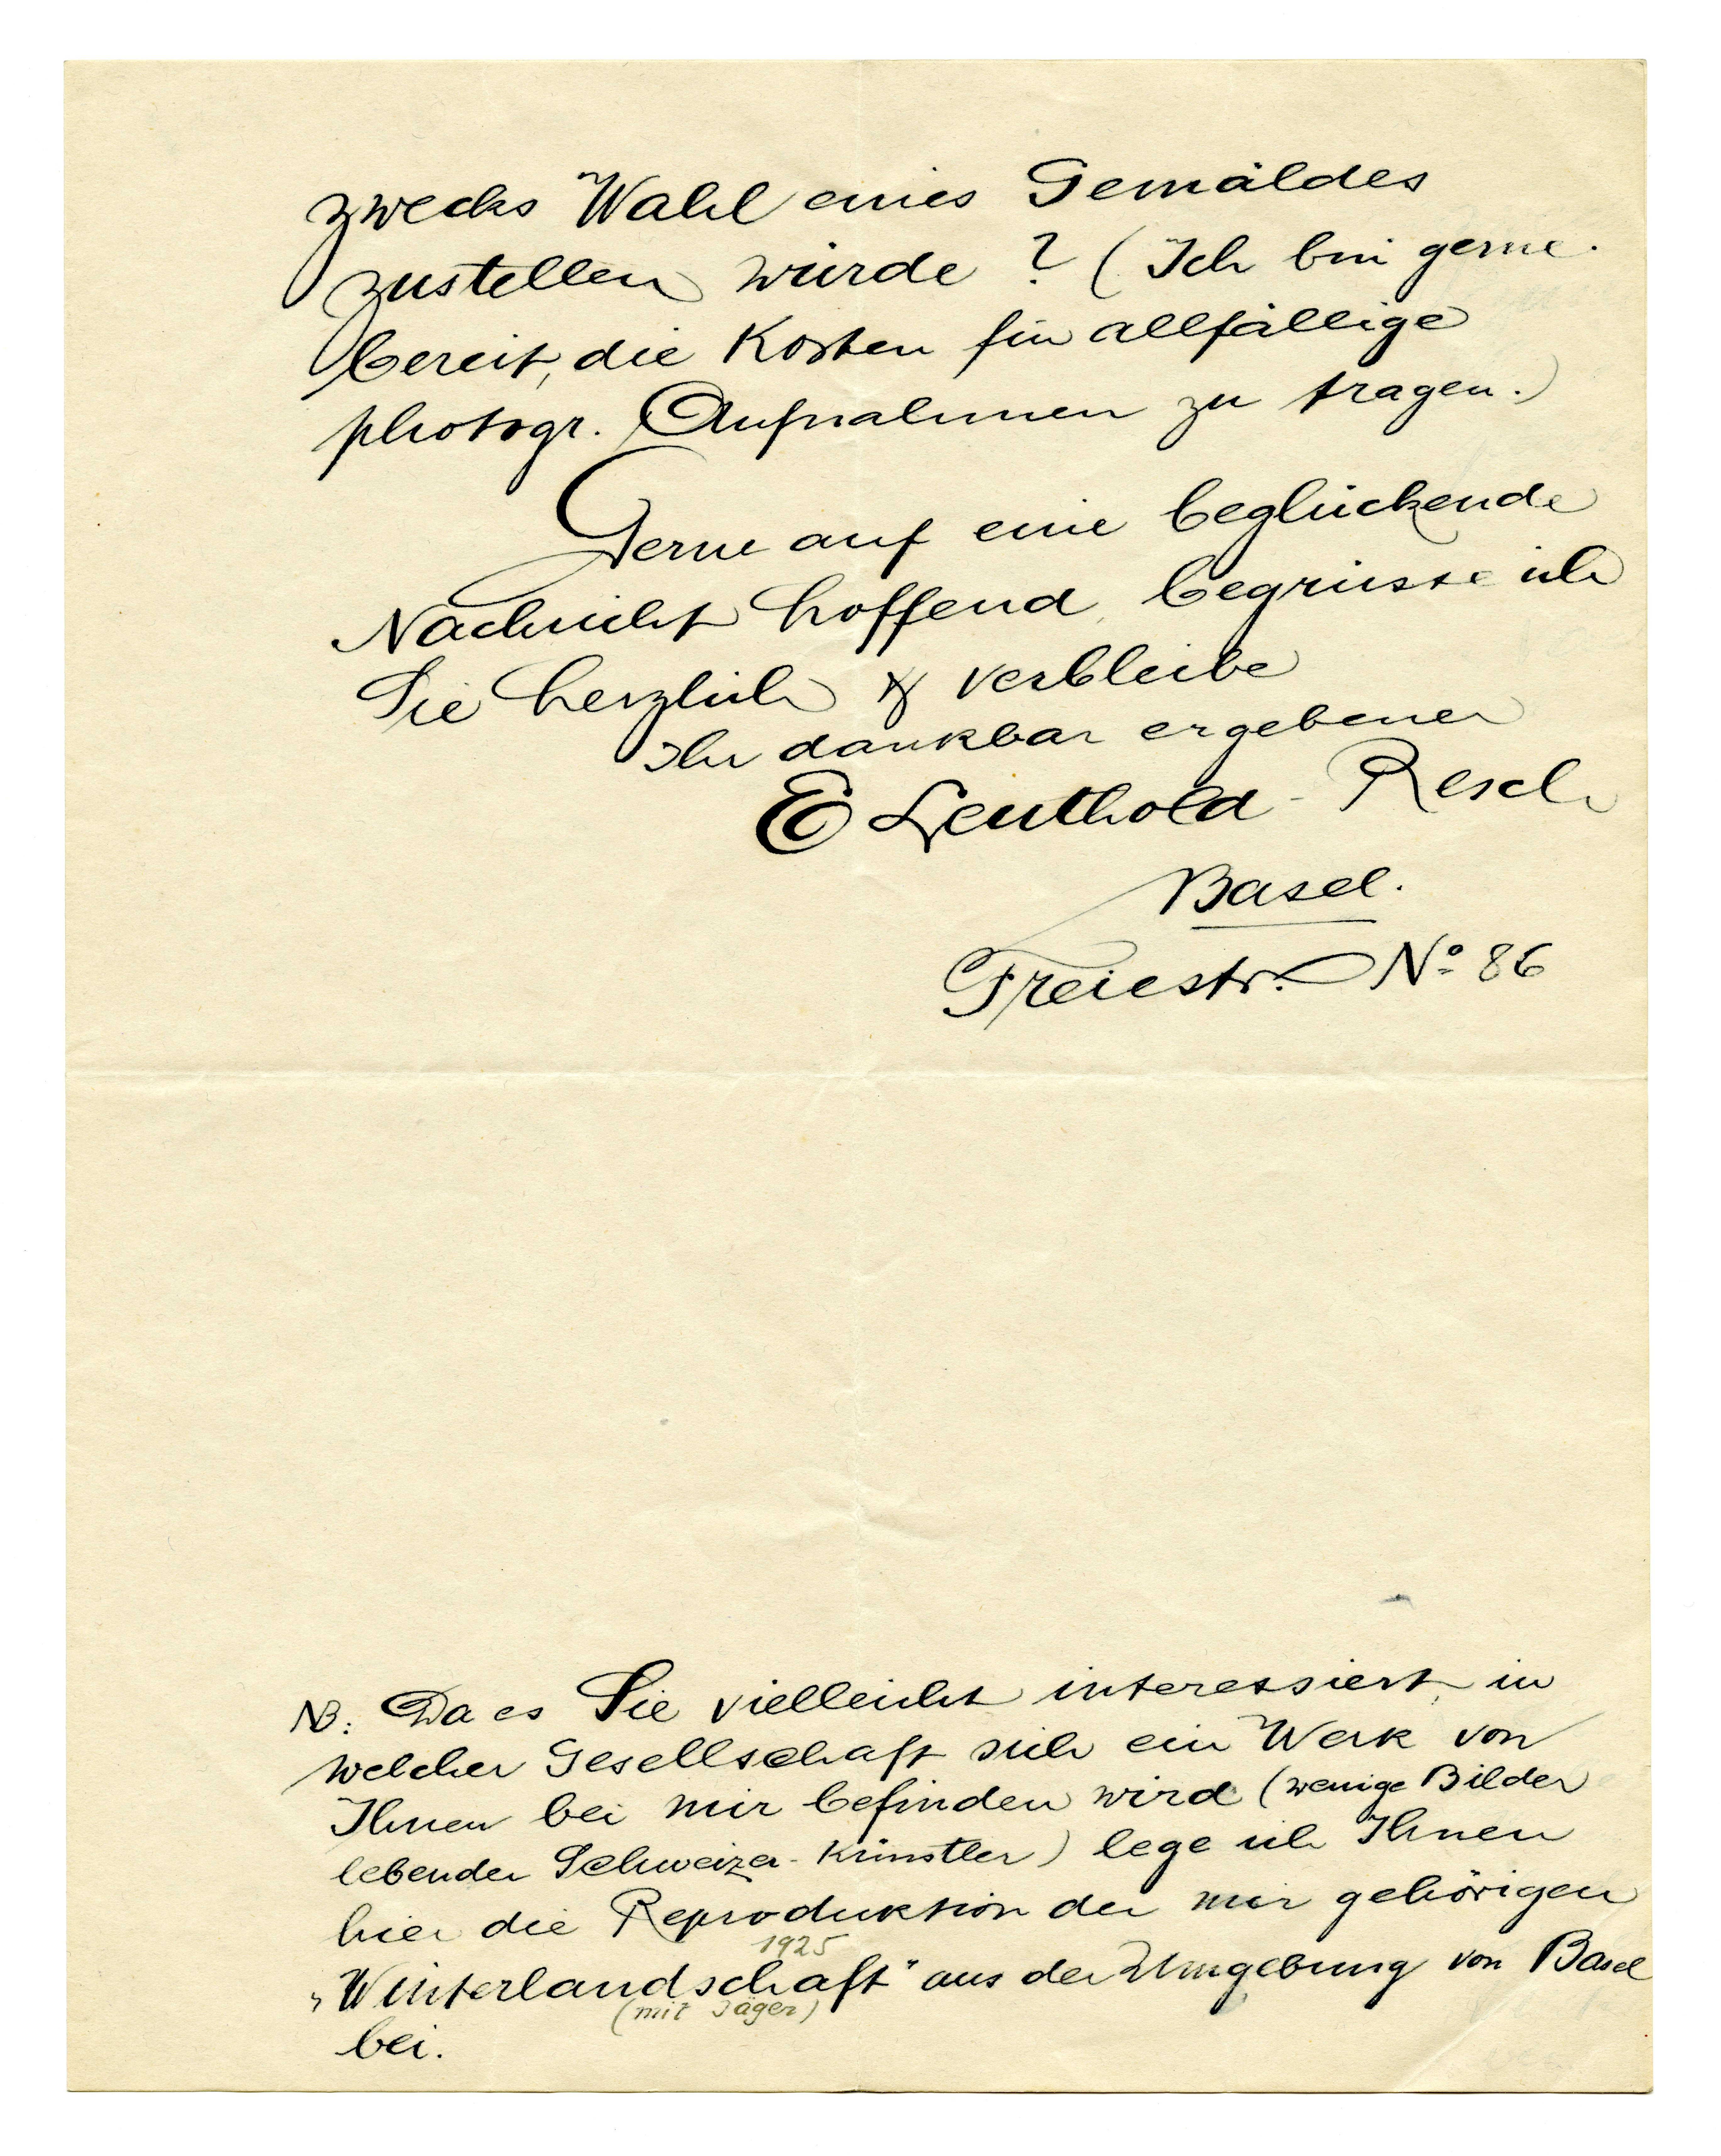 zwecks Wahl eines Gemäldes
zustellen würde ? (Ich bin gerne
bereit, die Kosten für allfällige
photogr. Aufnahmen zu tragen.)
Gerne auf eine beglückende
Nachricht hoffend, begrüsse ich
Sie herzlich & verbleibe
Ihr dankbar ergebener
E Leuthold-Resch
Basel.
Freiestr. Nº 86
NB: Da es Sie vielleicht interessiert, in
welcher Gesellschaft sich ein Werk von
Ihnen bei mir befinden wird (wenige Bilder
lebender Schweizer-Künstler) lege ich Ihnen
hier die Reproduktion der mir gehörigen
1925
„Winterlandschaft" aus der Umgebung von Basel
(mit Jäger)
bei.